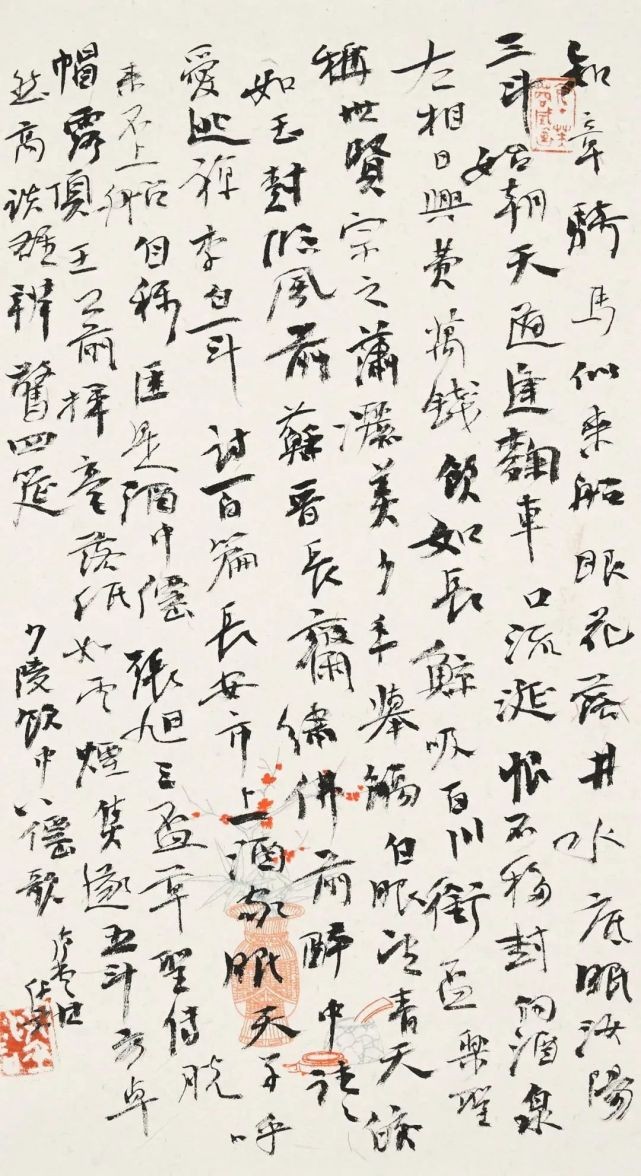 知章騎馬似乘船眼花落井水底眠汝陽
三斗始朝天道逢麴車口流涎恨不移封向酒泉
左相日興費萬錢飲如長鯨吸百川銜盃樂聖
稱世賢宗之蕭灑美少年舉觴白眼望青天皎
如玉樹臨風前蘇晉長齋繡佛前醉中往々
愛逃禪李白一斗詩百篇長安市上酒家眠天子呼
來不上船自稱臣是酒中僊張旭三盃草聖傳脫
帽露頂王公前揮毫落紙如雲煙焦遂五斗方卓
然高談雄辯驚四筵
少陵飲中八僊歌